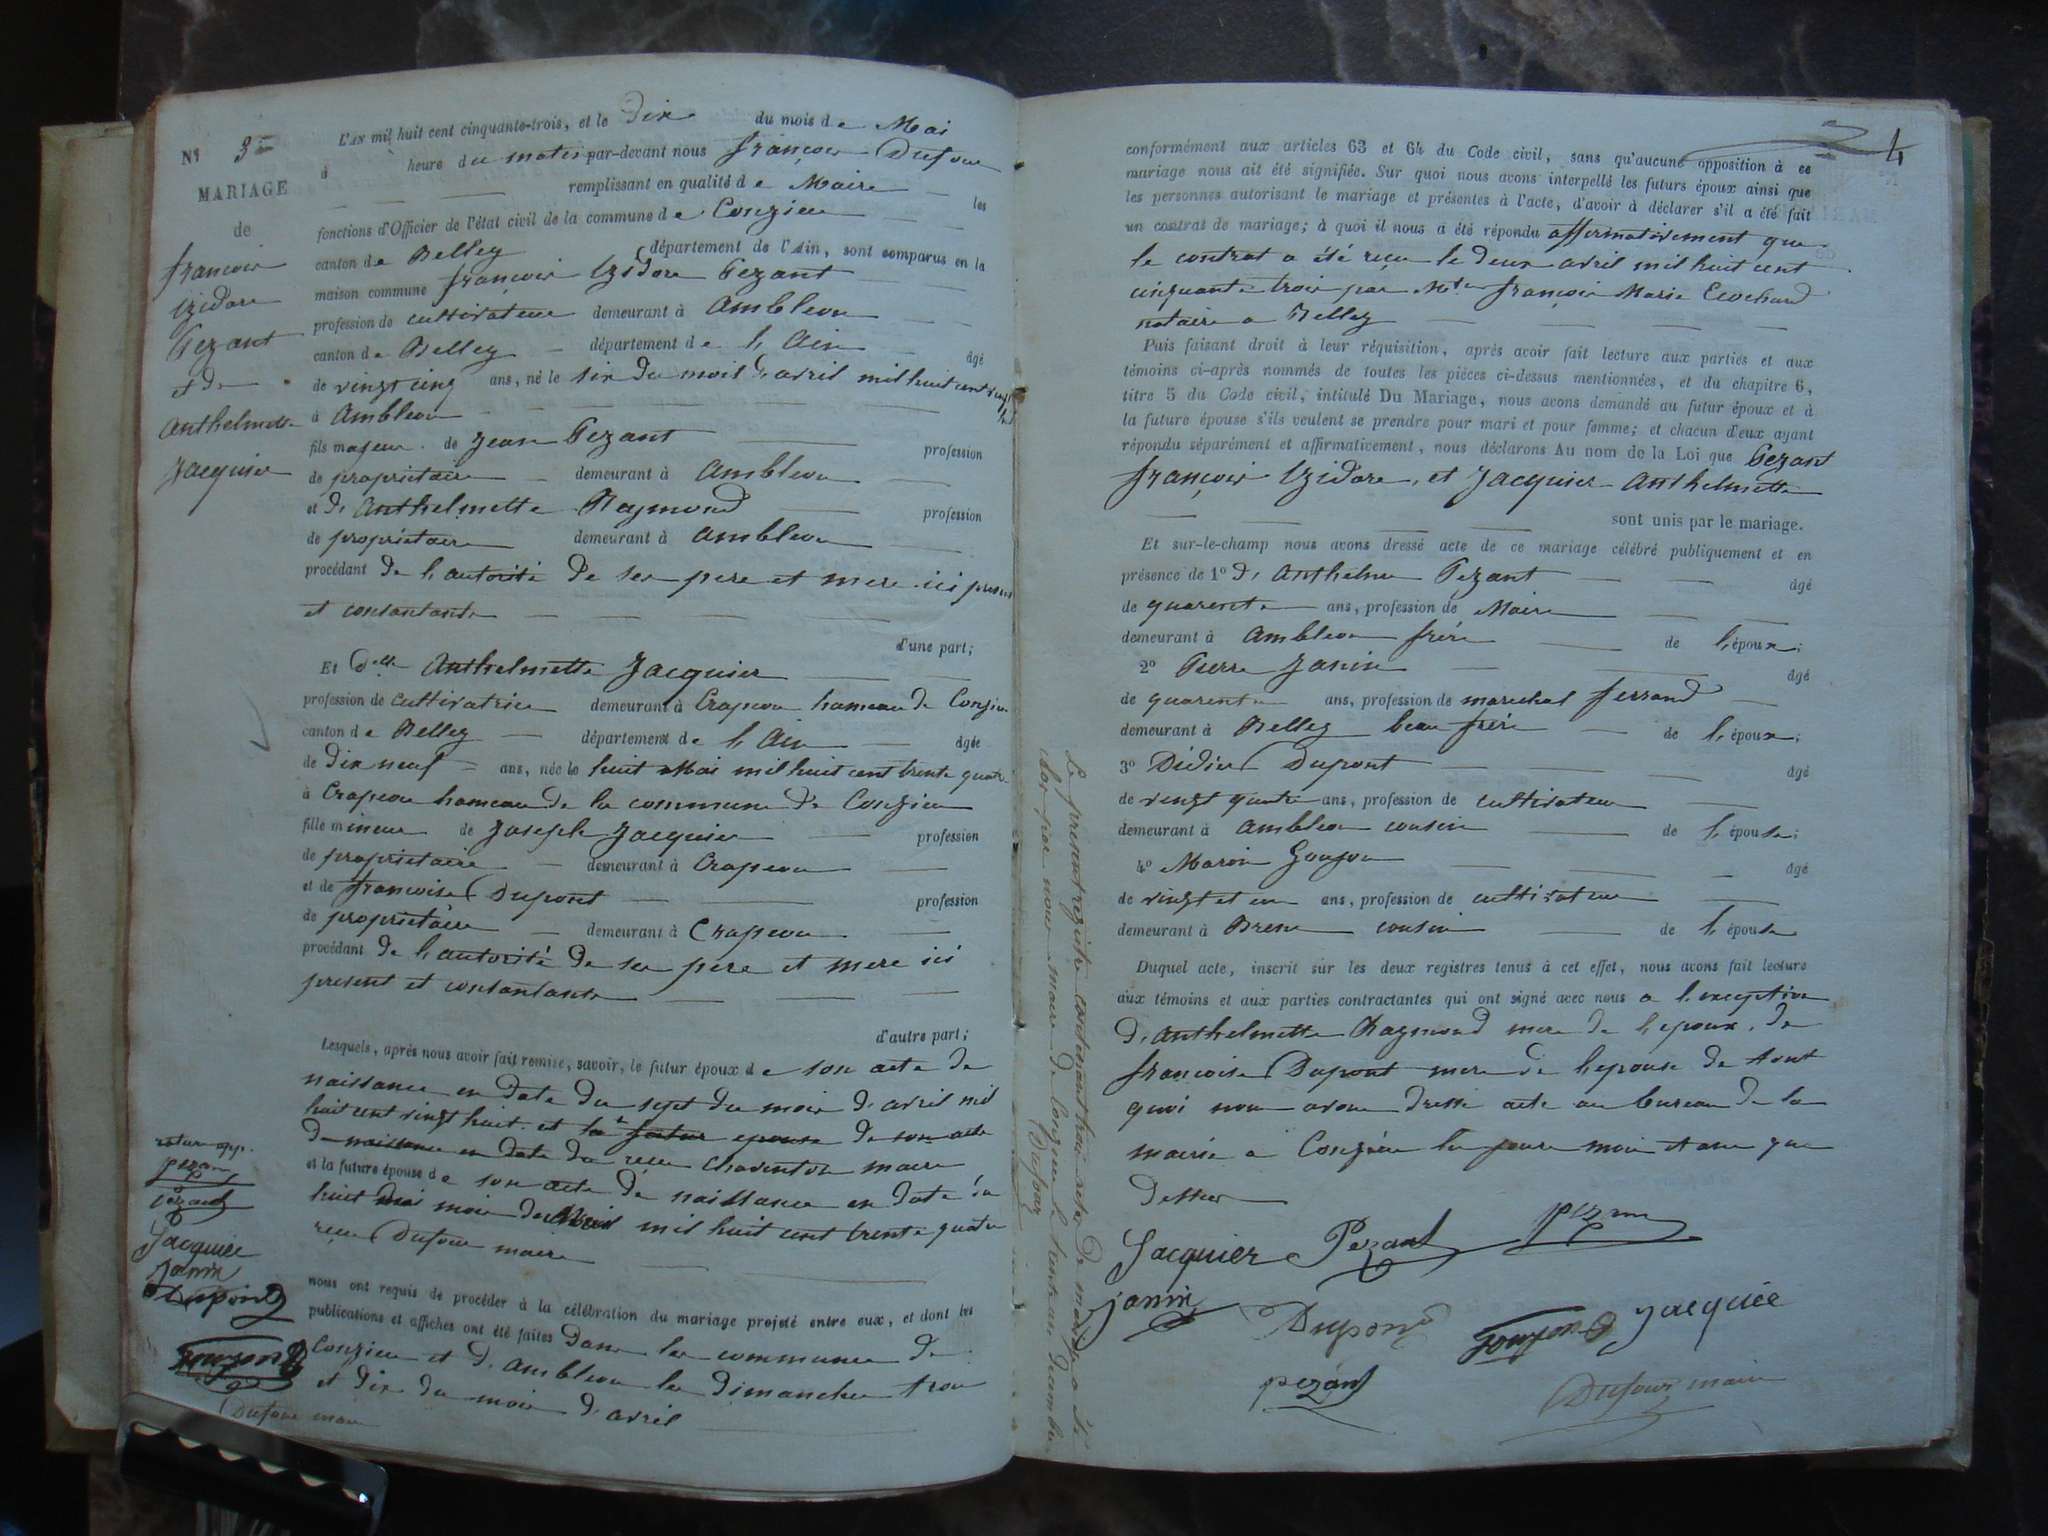 N° 3
MARIAGE
de
françois
Izidore
Pezant
et de
Anthelmette
Jacquier
L'AN mil huit cent cinquante-trois, et le Dix du mois de Mai
à heure du matin par-devant nous françois Dufour
remplissant en qualité de Maire les
fonctions d'Officier de l'état civil de la commune de Conzieu
canton de Belley département de l'Ain, sont comparus en la
maison commune françois Izidore Pezant
profession de cultivateur demeurant à Ambleon
canton de Belley département de l'Ain âgé
de vingt cinq ans, né le six du mois d'avril mil huit cent vingt huit
à Ambleon
fils majeur de Jean Pezant profession
de propriétaire demeurant à Ambleon
et d'Anthelmette Raymond profession
de propriétaire demeurant à Ambleon
procédant de l'autorité de ses pere et mere ici present
et consantante
d'une part;
Et Delle Anthelmette Jacquier
profession de cultivatrice demeurant à Crapeou hameau de Conzieu
canton de Belley département de l'Ain âgée
de dix neuf ans, née le huit Mai mil huit cent trente quatre
à Crapeou hameau de la commune de Conzieu
fille mineure de Joseph Jacquier profession
de propriétaire demeurant à Crapeou
et de francoise Dupont profession
de propriétaire demeurant à Crapeou
procédant de l'autorité de ses pere et mere ici
present et consantante
d'autre part;
Lesquels, après nous avoir fait remise, savoir, le futur époux de son acte de
naissance en date du sept du mois d'avril mil
huit cent vingt huit et la futur epouse de son acte
de naissance en date du recu Charenton maire
et la future épouse de son acte de naissance en date du
huit mai mois de Mai mil huit cent trente quatre
recu Dufour maire
nous ont requis de procéder à la célébration du mariage projeté entre eux, et dont les
publications et affiches ont été faites dans les communes de
Conzieu et d'Ambleon les dimanches trois
et dix du mois d'avril
rature app.
pezan
Pezant
Jacquiée
Janin
Dupond
Goujon
Dufour maire
Le present registre contenant huit actes de mariage a été
clos par nous maire de Conzieu le trente un decembre
Dufour
4
conformément aux articles 63 et 64 du Code civil, sans qu'aucune opposition à ce
mariage nous ait été signifiée. Sur quoi nous avons interpellé les futurs époux ainsi que
les personnes autorisant le mariage et présentes à l'acte, d'avoir à déclarer s'il a été fait
un contrat de mariage; à quoi il nous a été répondu affirmativement que
le contrat a été recu le deux avril mil huit cent
cinquante trois par Mtre françois Marie Ecochard
notaire a Belley
Puis faisant droit à leur réquisition, après avoir fait lecture aux parties et aux
témoins ci-après nommés de toutes les pièces ci-dessus mentionnées, et du chapitre 6,
titre 5 du Code civil, intitulé Du Mariage, nous avons demandé au futur époux et à
la future épouse s'ils veulent se prendre pour mari et pour femme; et chacun d'eux ayant
répondu séparément et affirmativement, nous déclarons Au nom de la Loi que Pezant
françois Izidore, et Jacquier Anthelmette
sont unis par le mariage.
Et sur-le-champ nous avons dressé acte de ce mariage célébré publiquement et en
présence de 1° d'Anthelme Pezant âgé
de quarente ans, profession de Maire
demeurant à Ambleon frére de l'époux;
2° Pierre Janin âgé
de quarente ans, profession de marechal ferrand
demeurant à Belley beau frére de l'époux;
3° Didier Dupont âgé
de vingt quatre ans, profession de cultivateur
demeurant à Ambleon cousin de l'épouse;
4° Marin Goujon âgé
de vingt et un ans, profession de cultivateur
demeurant à Brens cousin de l'épouse
Duquel acte, inscrit sur les deux registres tenus à cet effet, nous avons fait lecture
aux témoins et aux parties contractantes qui ont signé avec nous a l'exception
d'Anthelmette Raymond mere de l'epoux, de
francoise Dupont mere de l'epouse de tout
quoi nous avons dressé acte au bureau de la
mairie a Conzieu les jours mois et ans que
dessus
Jacquier Pezant pezan
janin Dupond Goujon Jacquiée
pezant Dufour maire